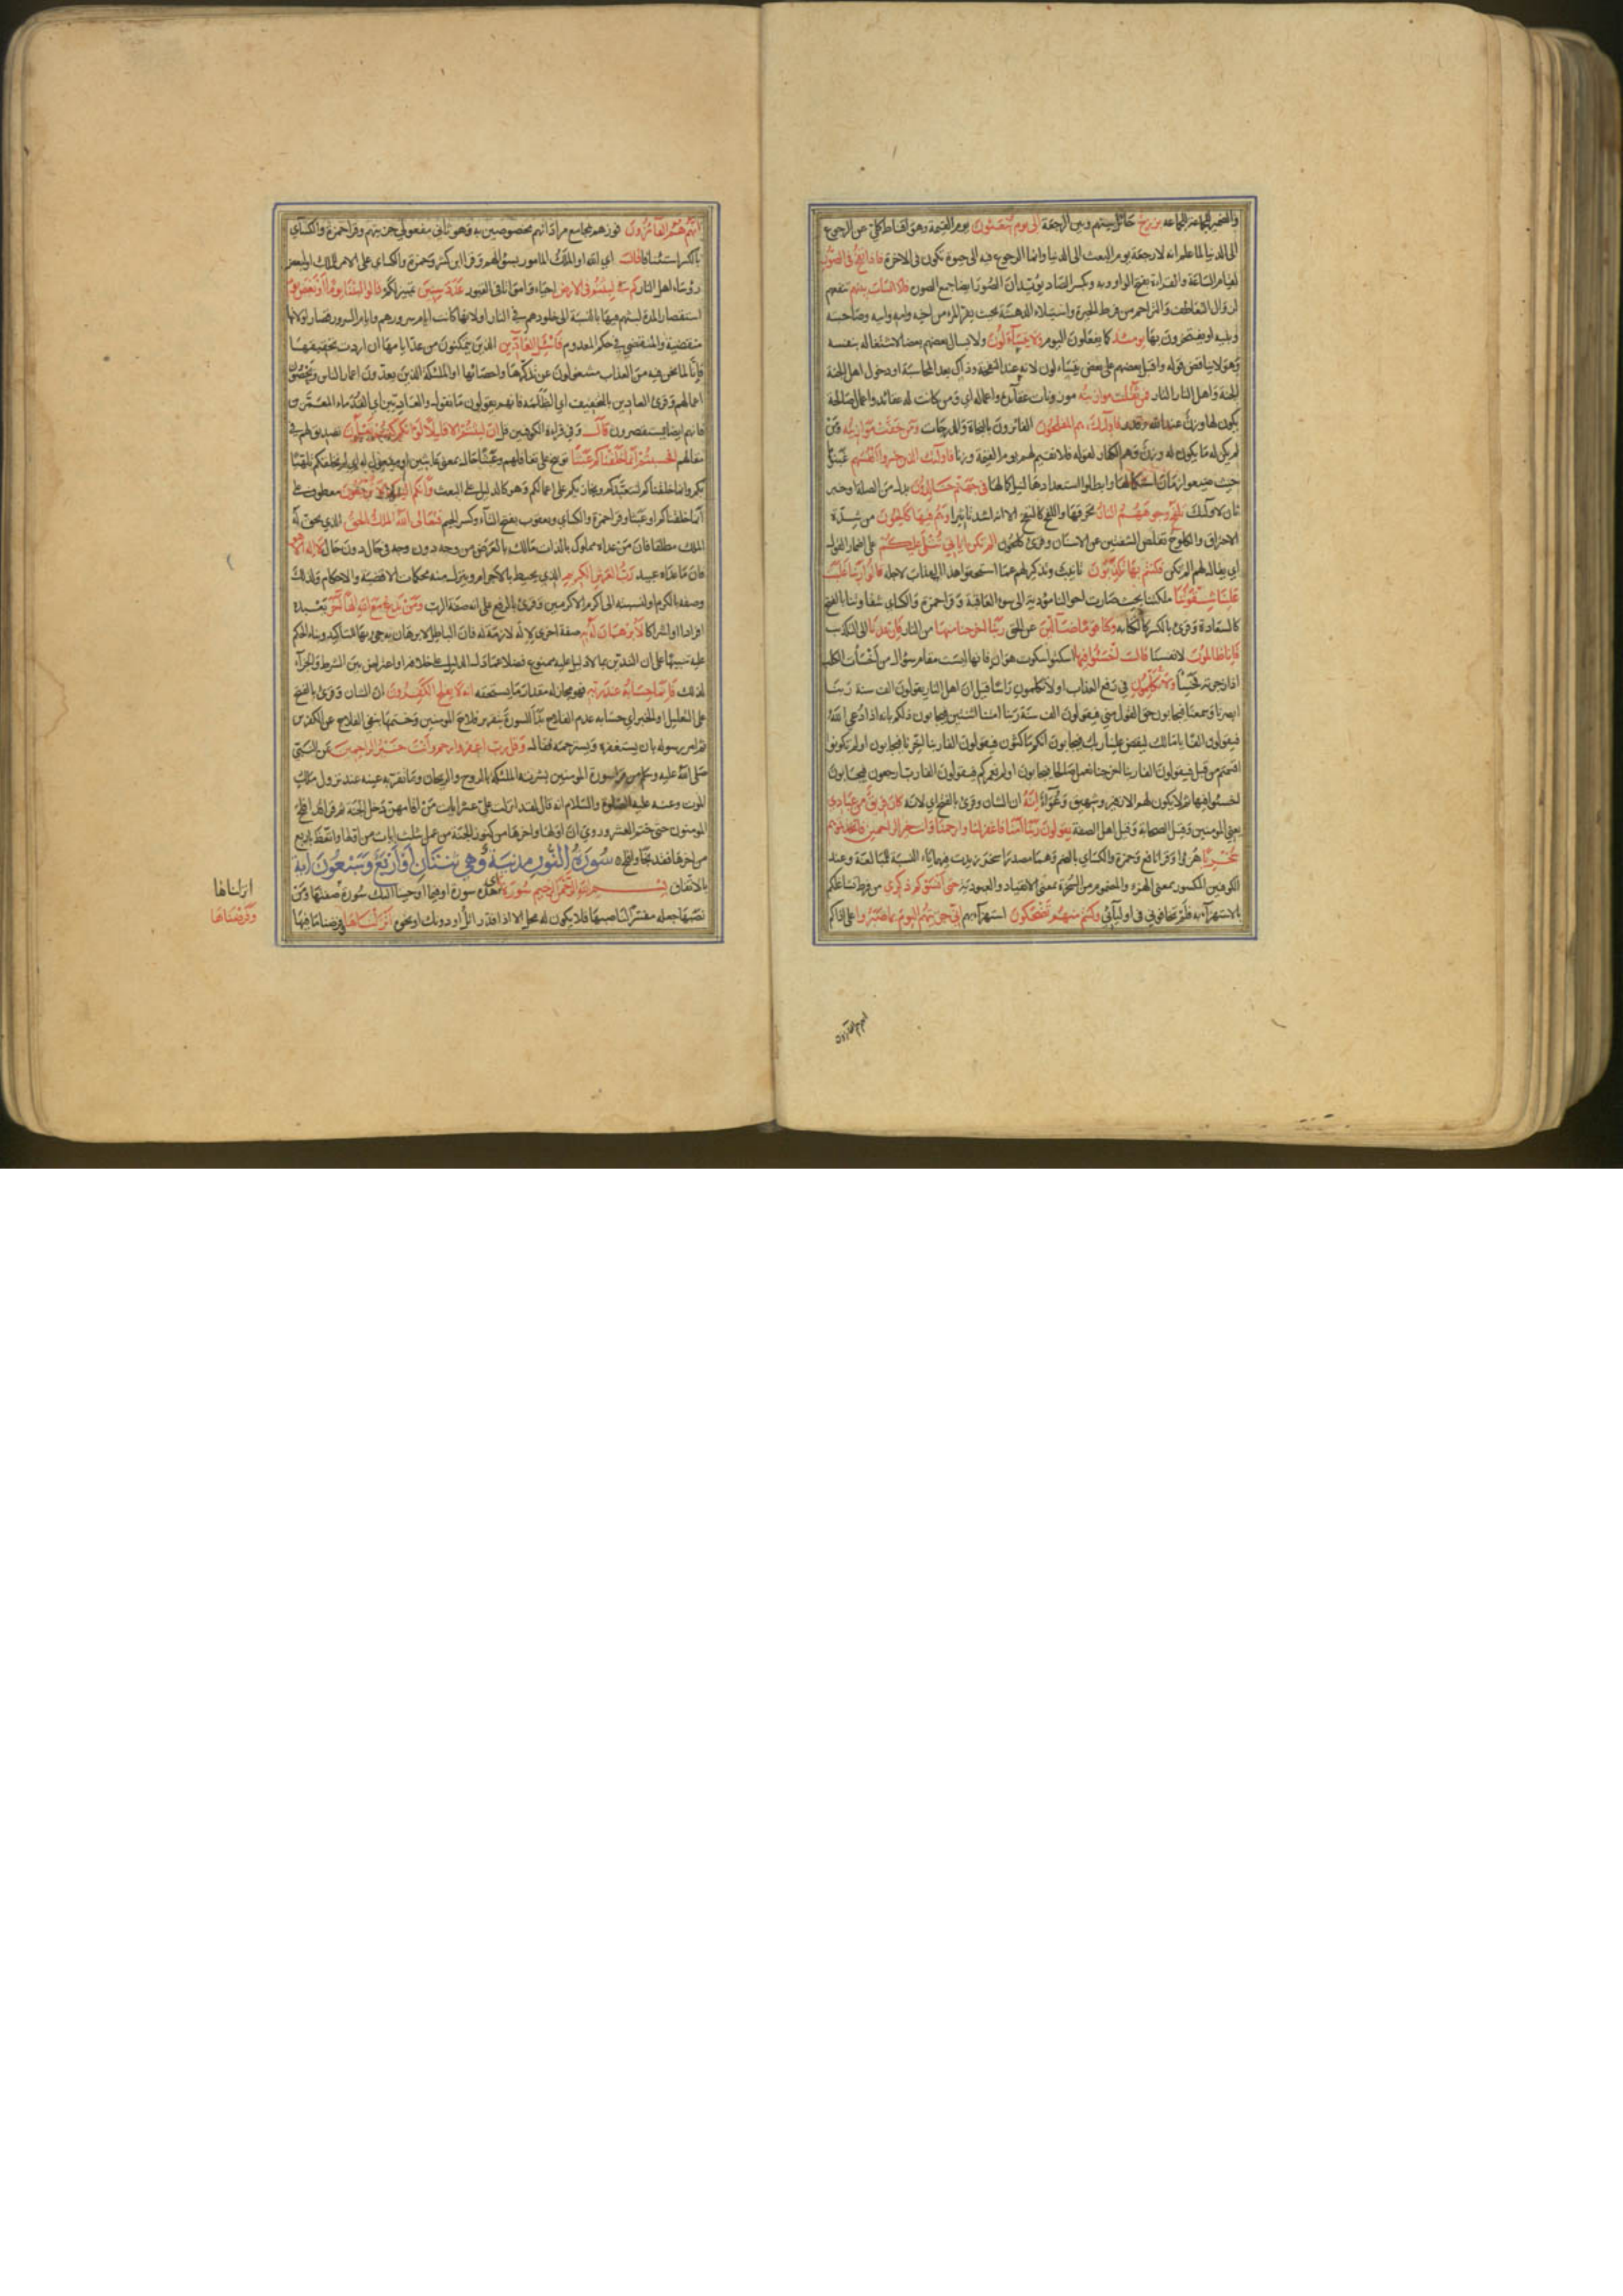 والضمير للجماعة برزخ حائل بينهم وبين الرجعة الى يوم يبعثون يوم القيمة وهو اقناط كلي عن الرجوع
الى الدنيا لما علم انه لا رجعة يوم البعث الى الدنيا وانما الرجوع فيه الى حيوة تكون فى الاخرة فاذا نفخ فى الصور
لقيام الساعة والقراءة بفتح الواو وبه وبكسر الصاد يؤيد ان الصور ايضا جمع الصورة فلا انساب بينهم تنفعهم
لزوال التعاطف والتراحم من فرط الحيرة واستيلاء الدهشة بحيث يفر المرء من اخيه وامه وابيه وصاحبته
وبنيه او يفتخرون بها يومئذ كما يفعلون اليوم ولا يتسآءلون ولا يسال بعضهم بعضا لاشتغاله بنفسه
وهو لا يناقض قوله واقبل بعضهم على بعض يتساءلون لانه عند النفخة وذاك بعد المحاسبة او دخول اهل الجنة
الجنة واهل النار النار فمن ثقلت موازينه موزونات عقآئده واعماله اي ومن كانت له عقائد واعمال صالحة
يكون لها وزن عند الله وقدر فاولئك هم المفلحون الفائزون بالنجاة والدرجات ومن خفت موازينه ومن
لم يكن له ما يكون له وزن وهم الكفار لقوله فلا نقيم لهم يوم القيمة وزنا فاولئك الذين خسروا انفسهم غبنوها
حيث ضيعوا زمان استكمالها وابطلوا استعدادها لنيل كمالها في جهنم خالدون بدل من الصلة او خبر
ثان لاولئك تلفح وجوههم النار تحرقها واللفح كالنفح الا انه اشد تاثيرا وهم فيها كالحون من شدة
الاحتراق والكلوح تقلص الشفتين عن الاسنان وقرئ كلحون الم تكن اياتي تتلى عليكم على اضمار القول
اي يقال لهم الم تكن فكنتم بها تكذبون تانيب وتذكير لهم بما استحقوا هذا العذاب لاجله قالوا ربنا غلبت
علينا شقوتنا ملكتنا بحيث صارت احوالنا مؤدية الى سوء العاقبة وقرا حمزة والكساي شقاوتنا بالفتح
كالسعادة وقرئ بالكسر كالكتابة وكنا قوما ضآلين عن الحق ربنا اخرجنا منها من النار فان عدنا الى التكذيب
فانا ظالمون لانفسنا قال اخسئوا فيها اسكتوا سكوت هوان فانها ليست مقام سؤال من خسأت الكلب
اذا زجرته فخسأ ولا تكلمون في رفع العذاب او لا تكلمون راسًا قيل ان اهل النار يقولون الف سنة ربنا
ابصرنا وسمعنا فيجابون حق القول منى فيقولون الف سنة ربنا امتنا اثنتين فيجابون ذلكم بانه اذا دعي الله
فيقولون الفا يا مالك ليقض علينا ربك فيجابون انكم ماكثون فيقولون الفا ربنا اخرنا فيجابون اولم تكونوا
اقسمتم من قبل فيقولون الفا ربنا اخرجنا نعمل صالحا فيجابون اولم نعمركم فيقولون الفا رب ارجعون فيجابون
اخسئوا فيها ثم لا يكون لهم الا زفير وشهيق وعُوَاءٌ انه ان الشان وقرئ بالفتح اي لانه كان فريق من عبادي
يعني المؤمنين وقيل الصحابة وقيل اهل الصفة يقولون ربنا آمنا فاغفر لنا وارحمنا وانت خير الراحمين فاتخذتموهم
سخريًا هزوا وقرا نافع وحمزة والكساي بالضم وهما مصدرا سخر زيدت فيهما ياء النسبة للمبالغة وعند
الكوفيين المكسور بمعنى الهزء والمضموم من السخرة بمعنى الانقياد والعبودية حتى انسوكم ذكري من فرط تشاغلكم
بالاستهزآء بهم فلم تخافوني فى اوليآئي وكنتم منهم تضحكون استهزآء بهم اني جزيتهم اليوم بما صبروا على اذاكم
انهم هم الفائزون
انهم هم الفآئزون فوزهم بمجامع مراداتهم مخصوصين به وهو ثاني مفعولي جزيتهم وقرا حمزة والكسآي
بالكسر استئنافا قال اي الله او الملك المامور بسؤالهم وقرا ابن كثير وحمزة والكساي على الامر للملك او لبعض
رؤساء اهل النار كم لبثتم فى الارض احياء وامواتا فى القبور عدد سنين تمييز لكم قالوا لبثنا يوما او بعض يوم
استقصار المدة لبثهم فيها بالنسبة الى خلودهم في النار او لانها كانت ايام سرورهم وايام السرور قصار او لانها
منقضية والمنقضي في حكم المعدوم فاسئل العآدين الذين يتمكنون من عد ايامها ان اردت تحقيقها
فانا لما نحن فيه من العذاب مشغولون عن تذكرها واحصائها او الملئكة الذين يعدون اعمار الناس ويحصون
اعمالهم وقرئ العادين بالتخفيف اي الظلمة فانهم يقولون ما نقول والعاديين اي القدماء المعمرين
فانهم ايضا يستقصرون قال وفي قراءة الكوفيين قل ان لبثتم الا قليلا لو انكم كنتم تعلمون تصديق لهم في
مقالهم افحسبتم انما خلقناكم عبثا توبيخ على تغافلهم وعبثا حال بمعنى عابثين او مفعول له اي لم نخلقكم تلهيا
بكم وانما خلقناكم لنتعبدكم ونجازيكم على اعمالكم وهو كالدليل على البعث وانكم الينا لا ترجعون معطوف على
انما خلقناكم او عبثا وقرا حمزة والكساي ويعقوب بفتح التآء وكسر الجيم فتعالى الله الملك الحق الذي يحق له
الملك مطلقا فان من عداه مملوك بالذات مالك بالعرض من وجه دون وجه وفى حال دون حال لا اله الا هو
فان ما عداه عبيد رب العرش الكريم الذي يحيط بالاجرام وينزل منه محكمات الاقضية والاحكام ولذلك
وصفه بالكرم او لنسبته الى اكرم الاكرمين وقرئ بالرفع على انه صفة الرب ومن يدع مع الله الها آخر يعبده
افرادا او اشراكا لا برهان له به صفة اخرى لاله لازمة له فان الباطل لا برهان به جئ بها للتاكيد وبناء الحكم
عليه تنبيها على ان التدين بما لا دليل عليه ممنوع فضلا عما دل الدليل على خلافه او اعتراض بين الشرط والجزآء
لذلك فانما حسابه عند ربه فهو مجاز له مقدار ما يستحقه انه لا يفلح الكفرون ان الشان وقرئ بالفتح
على التعليل او الخبر اي حسابه عدم الفلاح بدأ السورة بتقرير فلاح المومنين وختمها بنفى الفلاح عن الكفرين
ثم امر رسوله بان يستغفره ويسترحمه فقال وقل رب اغفر وارحم وانت خير الراحمين عن النبي
صلى الله عليه وسلم من قرأ سورة المومنين بشرته الملئكة بالروح والريحان وما تقر به عينه عند نزول ملك
الموت وعنه عليه الصلوة والسلام انه قال لقد انزلت على عشر ايات من اقامهن دخل الجنة ثم قرا قد افلح
المومنون حتى ختم العشر وروي ان اولها واخرها من كنوز الجنة من عمل بثلث ايات من اولها واتعظ باربع
من اخرها فقد نجا وافلح سورة النور مدنية وهي ثنتان او اربع وستون آية
بالاتفاق بسم الله الرحمن الرحيم سورة اي هذه سورة او فيما اوحينا اليك سورة صفتها ومن
نصبها جعله مفسرا لناصبها فلا يكون له محل الا اذا قدر اتل او دونك او نحوه انزلناها وفرضنا ما فيها
انزلناها
وفرضناها